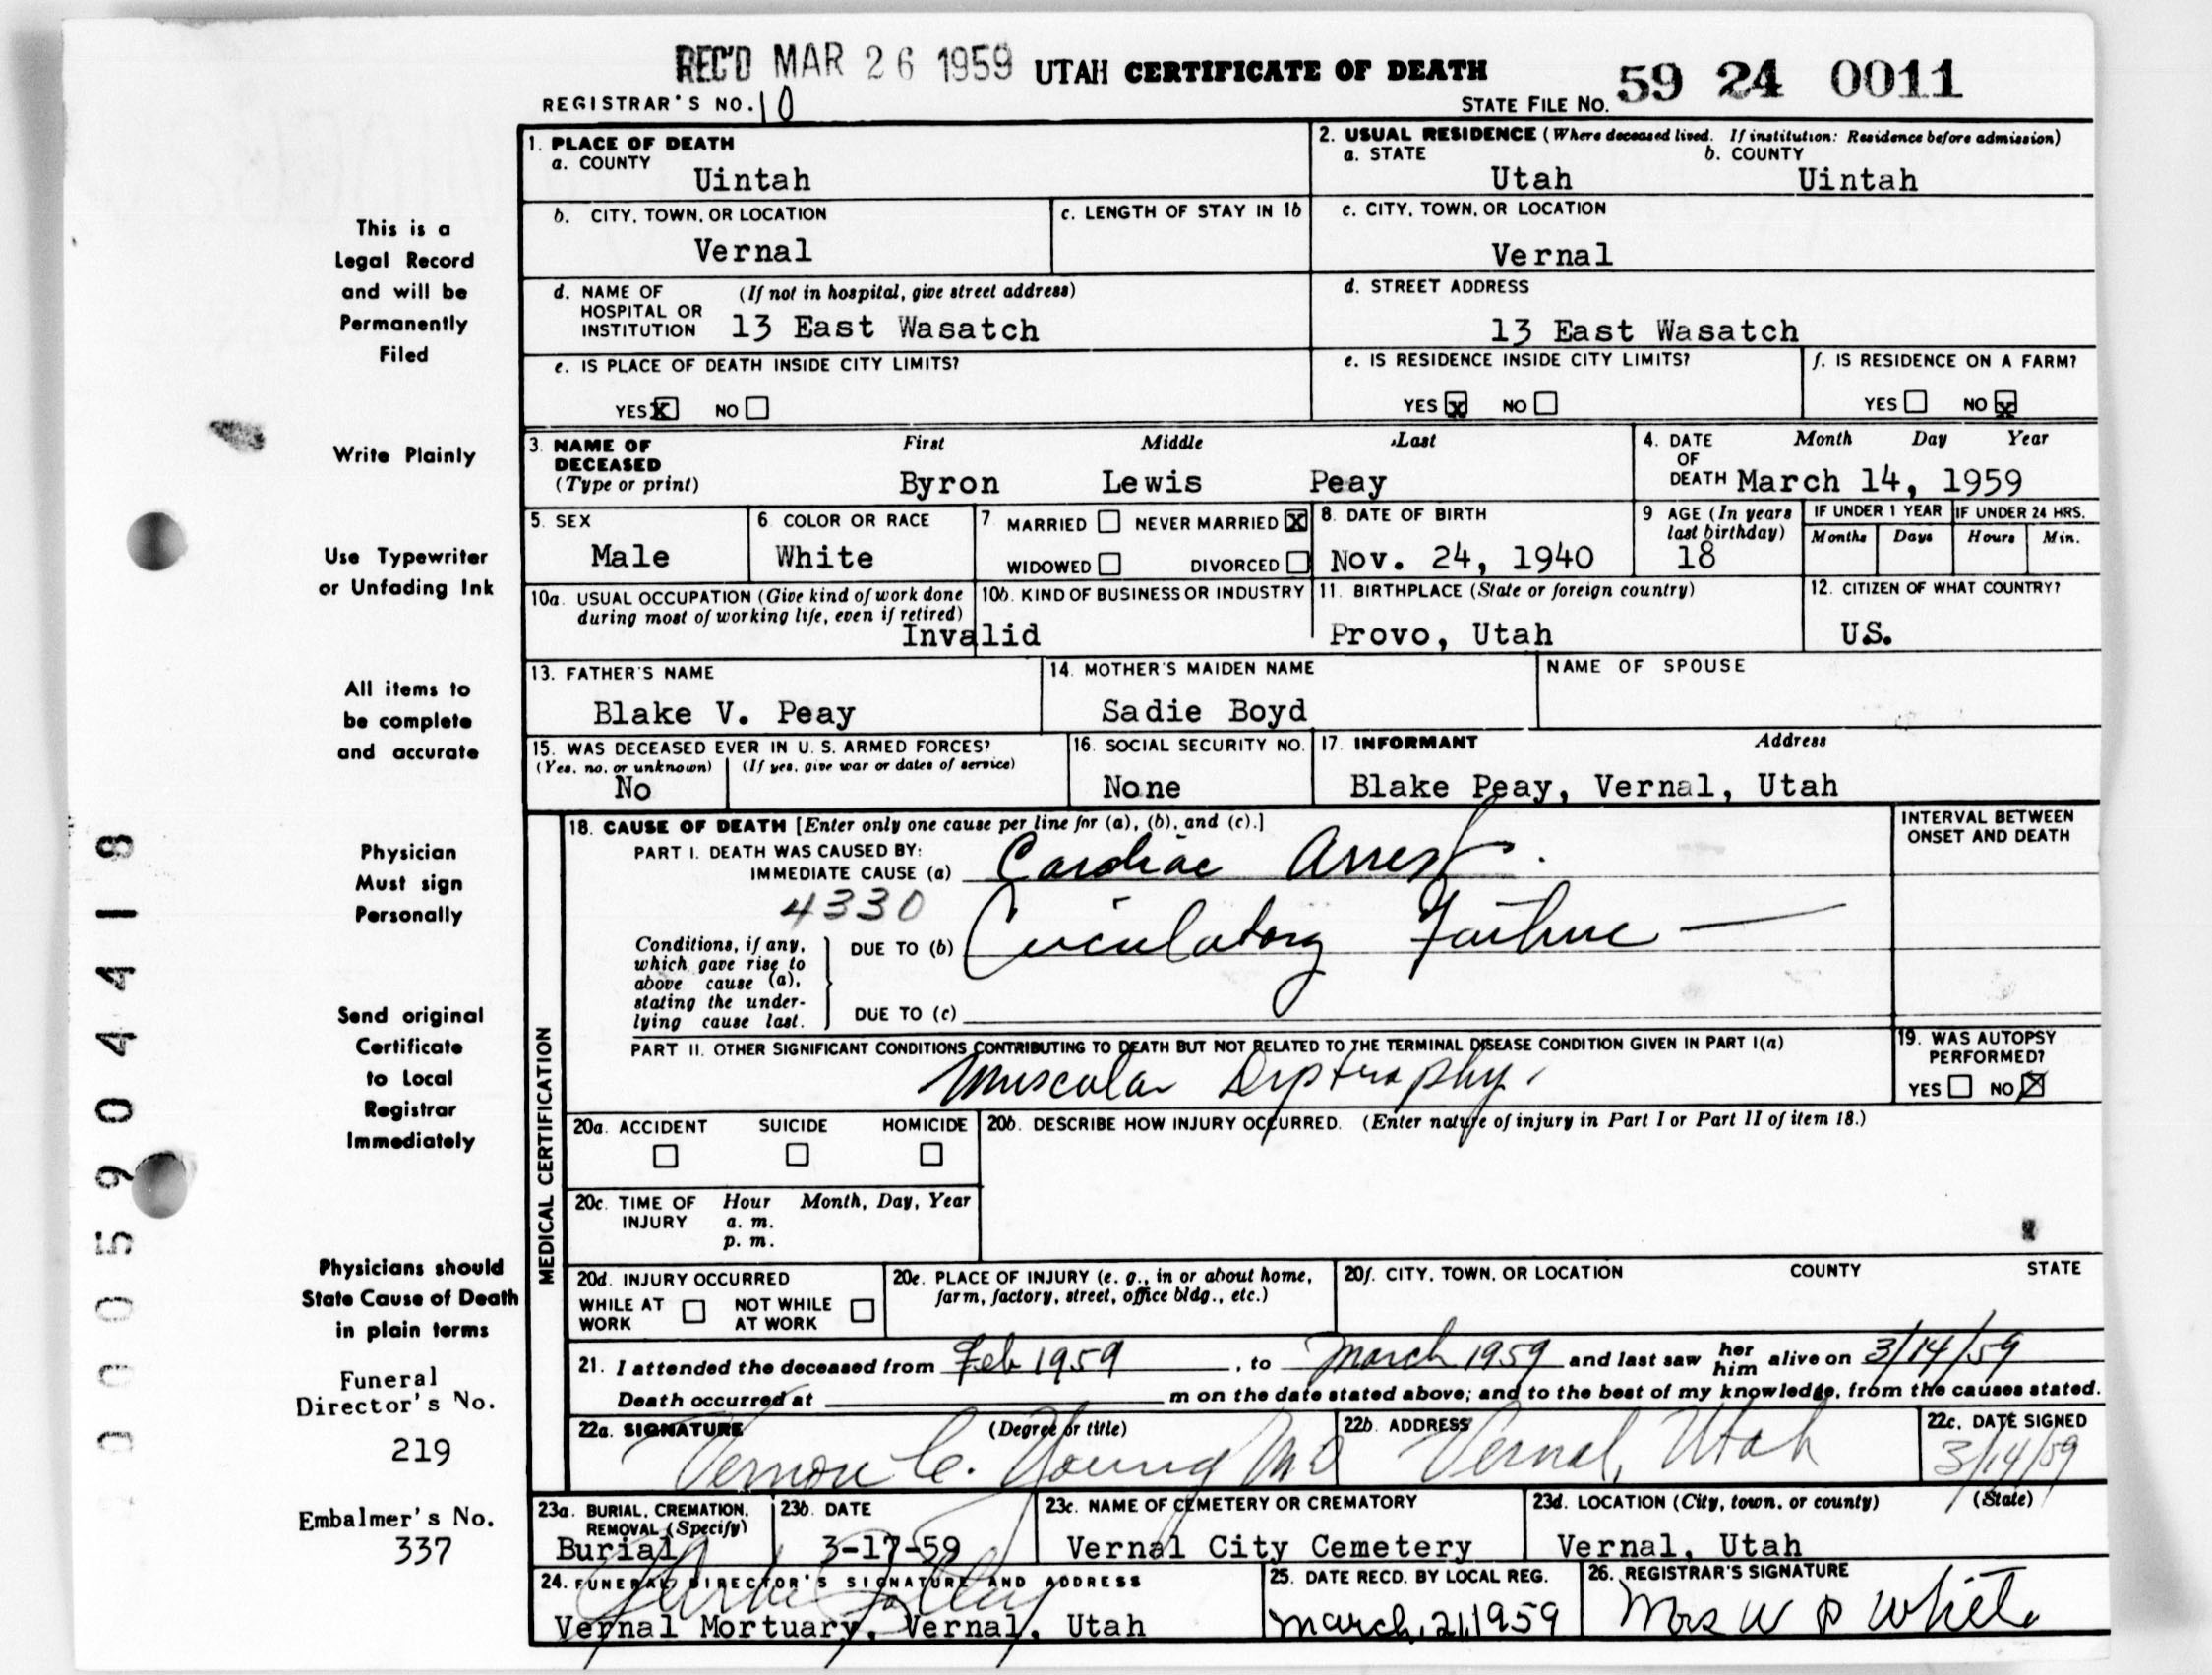 REC'D MAR 26 1959 UTAH CERTIFICATE OF DEATH 59 24 0011
REGISTRAR'S NO. 10 STATE FILE NO.
1. PLACE OF DEATH
a. COUNTY
Uintah
2. USUAL RESIDENCE (Where deceased lived. If institution: Residence before admission)
a. STATE b. COUNTY
Utah Uintah
b. CITY, TOWN, OR LOCATION
Vernal
c. LENGTH OF STAY IN 1b
c. CITY, TOWN, OR LOCATION
Vernal
d. NAME OF (If not in hospital, give street address)
HOSPITAL OR
INSTITUTION 13 East Wasatch
d. STREET ADDRESS
13 East Wasatch
e. IS PLACE OF DEATH INSIDE CITY LIMITS?
YES X NO
e. IS RESIDENCE INSIDE CITY LIMITS?
YES X NO
f. IS RESIDENCE ON A FARM?
YES NO X
3. NAME OF First Middle Last
DECEASED
(Type or print) Byron Lewis Peay
4. DATE Month Day Year
OF
DEATH March 14, 1959
5. SEX
Male
6. COLOR OR RACE
White
7 MARRIED NEVER MARRIED X
WIDOWED DIVORCED
8. DATE OF BIRTH
Nov. 24, 1940
9 AGE (In years
last birthday)
18
IF UNDER 1 YEAR IF UNDER 24 HRS.
Months Days Hours Min.
10a. USUAL OCCUPATION (Give kind of work done
during most of working life, even if retired)
Invalid
10b. KIND OF BUSINESS OR INDUSTRY
11. BIRTHPLACE (State or foreign country)
Provo, Utah
12. CITIZEN OF WHAT COUNTRY?
U.S.
13. FATHER'S NAME
Blake V. Peay
14. MOTHER'S MAIDEN NAME
Sadie Boyd
NAME OF SPOUSE
15. WAS DECEASED EVER IN U. S. ARMED FORCES?
(Yes, no, or unknown) (If yes, give war or dates of service)
No
16. SOCIAL SECURITY NO.
None
17. INFORMANT Address
Blake Peay, Vernal, Utah
MEDICAL CERTIFICATION
18. CAUSE OF DEATH [Enter only one cause per line for (a), (b), and (c).]
PART I. DEATH WAS CAUSED BY:
IMMEDIATE CAUSE (a) Cardiac Arrest.
4330
Conditions, if any,
which gave rise to
above cause (a),
stating the under-
lying cause last.
DUE TO (b) Circulatory Failure —
DUE TO (c)
INTERVAL BETWEEN
ONSET AND DEATH
PART II. OTHER SIGNIFICANT CONDITIONS CONTRIBUTING TO DEATH BUT NOT RELATED TO THE TERMINAL DISEASE CONDITION GIVEN IN PART I(a)
Muscular Dystrophy.
19. WAS AUTOPSY
PERFORMED?
YES NO X
20a. ACCIDENT SUICIDE HOMICIDE
20b. DESCRIBE HOW INJURY OCCURRED. (Enter nature of injury in Part I or Part II of item 18.)
20c. TIME OF Hour Month, Day, Year
INJURY a. m.
p. m.
20d. INJURY OCCURRED
WHILE AT NOT WHILE
WORK AT WORK
20e. PLACE OF INJURY (e. g., in or about home,
farm, factory, street, office bldg., etc.)
20f. CITY, TOWN, OR LOCATION COUNTY STATE
21. I attended the deceased from Feb 1959, to March 1959 and last saw her him alive on 3/14/59
Death occurred at m on the date stated above; and to the best of my knowledge, from the causes stated.
22a. SIGNATURE (Degree or title)
Vernon C. Young MD
22b. ADDRESS
Vernal, Utah
22c. DATE SIGNED
3/14/59
23a. BURIAL, CREMATION,
REMOVAL (Specify)
Burial
23b. DATE
3-17-59
23c. NAME OF CEMETERY OR CREMATORY
Vernal City Cemetery
23d. LOCATION (City, town, or county) (State)
Vernal, Utah
24. FUNERAL DIRECTOR'S SIGNATURE AND ADDRESS
Vernal Mortuary, Vernal, Utah
25. DATE RECD. BY LOCAL REG.
March, 21, 1959
26. REGISTRAR'S SIGNATURE
Mrs W P White
This is a
Legal Record
and will be
Permanently
Filed
Write Plainly
Use Typewriter
or Unfading Ink
All items to
be complete
and accurate
Physician
Must sign
Personally
Send original
Certificate
to Local
Registrar
Immediately
Physicians should
State Cause of Death
in plain terms
Funeral
Director's No.
219
Embalmer's No.
337
000590418